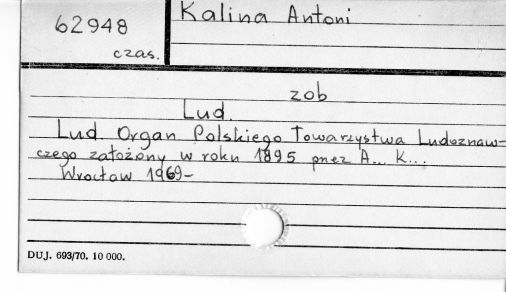 62948
czas.
Kalina Antoni
zob
Lud.
Lud. Organ Polskiego Towarzystwa Ludoznaw-
czego założony w roku 1895 przez A... K...
Wrocław 1969-
DUJ. 693/70. 10 000.